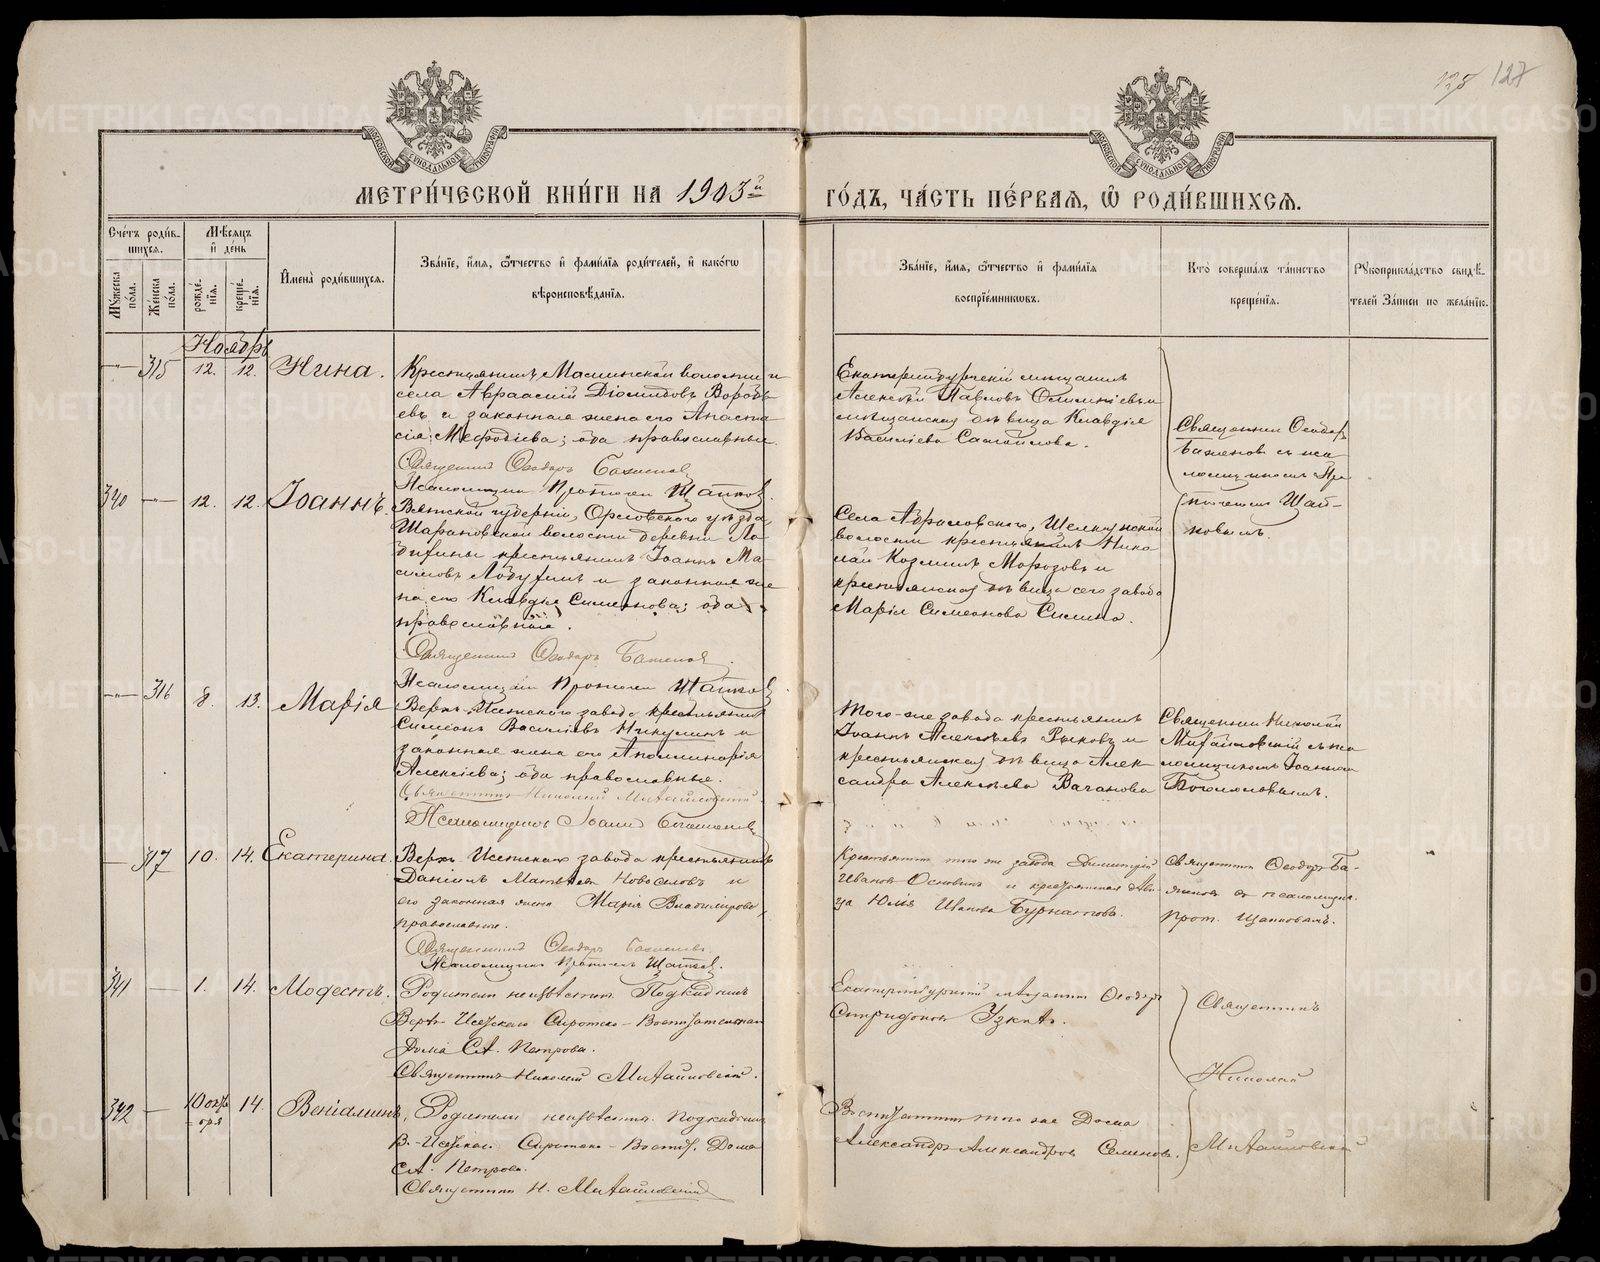 128 127
МОСКОВСКОЙ СѴНОДАЛЬНОЙ ТИПОГРАФІИ
МОСКОВСКОЙ СѴНОДАЛЬНОЙ ТИПОГРАФІИ
МЕТРИ́ЧЕСКОЙ КНИ́ГИ НА 1903й
ГО́ДЪ, ЧА́СТЬ ПЕ́РВАЯ, Ѽ РОДИ́ВШИХСЯ.
Сче́тъ роди́в-
шихся.
Мѣ́сяцъ
и҆ де́нь
Мꙋ́жеска
по́ла.
Же́нска
по́ла.
рожде́-
нїя.
креще́-
нїя.
И҆мена̀ роди́вшихся.
Зва́нїе, и҆́мя, ѻ҆́тчество и҆ фами́лїя роди́телей, и҆ како́гѡ
вѣроисповѣ́данїя.
Зва́нїе, и҆́мя, ѻ҆́тчество и҆ фами́лїя
воспрїе́мниковъ.
Кто̀ соверша́лъ та́инство
креще́нїя.
Рꙋкоприкла́дство свидѣ́-
телей за́писи по жела́нїю.
Ноябрь
315 12. 12. Нина.
Крестьянинъ Маминской волости и
села Авраамій Діомидовъ Воробь-
евъ и законная жена его Анаста-
сія Меѳодіева; оба православные.
Священникъ Ѳеодоръ Баженовъ
Псаломщикъ Протогенъ Щапковъ.
Екатеринбургскій мѣщанинъ
Алексѣй Павловъ и
мѣщанская дѣвица Клавдія
Василіева Самойлова.
Священник Ѳеодоръ
Баженов съ пса-
ломщикомъ Про
тогеномъ Щап-
ковымъ.
340 12. 12. Іоаннъ.
Вятской губерніи, Орловскаго уѣзда,
Шарановской волости деревни Ло-
дыгины крестьянинъ Іоаннъ Ма-
симовъ и законная же-
на его Клавдія Симеонова; оба
православные.
Священникъ Ѳеодоръ Баженовъ.
Псаломщикъ Протогенъ Щапковъ
Села Абрамовскаго, Щелкунской
волости крестьянинъ Нико
лай Козминъ Морозовъ и
крестьянская дѣвица сего завода
Марія Симеонова Силина.
316 8. 13. Марія
Верхъ-Исетскаго завода крестьянинъ
Симеонъ Василіевъ Никулинъ и
законная жена его Аполлинарія
Алексіева; оба православные.
Священникъ Николай Михайловскій.
Псаломщикъ Іоаннъ Богословъ
Того-же завода крестьянинъ
Іоаннъ Алексѣевъ Рыковъ и
крестьянская дѣвица Алек
сандра Алексѣева Ваганова
Священник Николай
Михайловскій съ пса
ломщикомъ Іоанномъ
Богословымъ.
317 10. 14. Екатерина.
Верхъ-Исетскаго завода крестьянинъ
Даніилъ Матвѣевъ Новоселовъ и
его законная жена Марія Владимірова,
православные.
Священникъ Ѳеодоръ Баженовъ.
Псаломщикъ Протогенъ Щапковъ.
Крестьянин того же завода Димитрій
Ивановъ Осковинъ и крестьянская дѣви-
ца Юлія Иванова Бурматова.
Священникъ Ѳеодоръ Ба-
женовъ съ псаломщик.
Прот. Щапковымъ.
341 1. 14. Модестъ.
Родители неизвѣстны. Подкидышъ
Верхъ-Исетскаго Сиротско-Воспитательнаго
Дома С.А. Петрова.
Священникъ Николай Михайловскій.
Екатеринбургскій мѣщанинъ Ѳеодоръ
Спиридоновъ Узкихъ.
Священникъ
Николай
Михайловскій
342 10 октя-
бря 14. Веніаминъ.
Родители неизвѣстны. Подкидышъ
В.-Исетскаго Сиротско-Воспит. Дома
С.А. Петрова.
Священникъ Н. Михайловскій
Воспитанникъ того же Дома
Александръ Александровъ Семеновъ.
METRIKI.GASO-URAL.RU